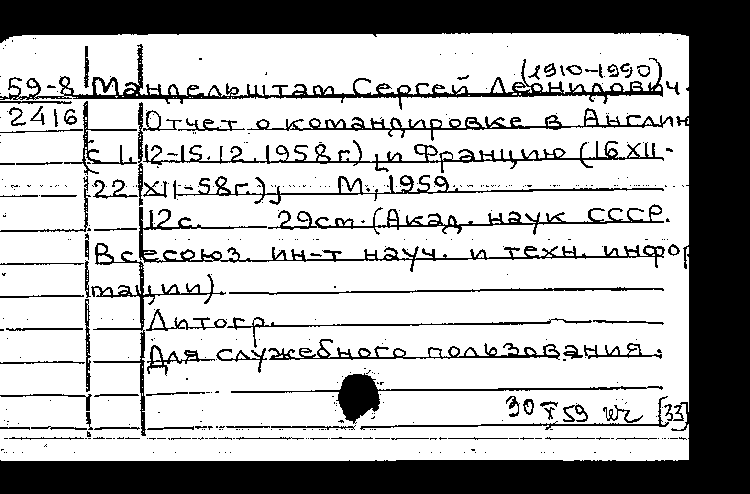 (1910-1990)
59-8 Мандельштам, Сергей Леонидович.
2416 Отчет о командировке в Англию
(с 1.12-15.12.1958г.) [и Францию (16 XII-
22 XII-58г.)] М., 1959.
12с. 29см. (Акад. наук СССР.
Всесоюз. ин-т науч. и техн. инфор
мации).
Литогр.
Для служебного пользования.
30 X 59 [33]